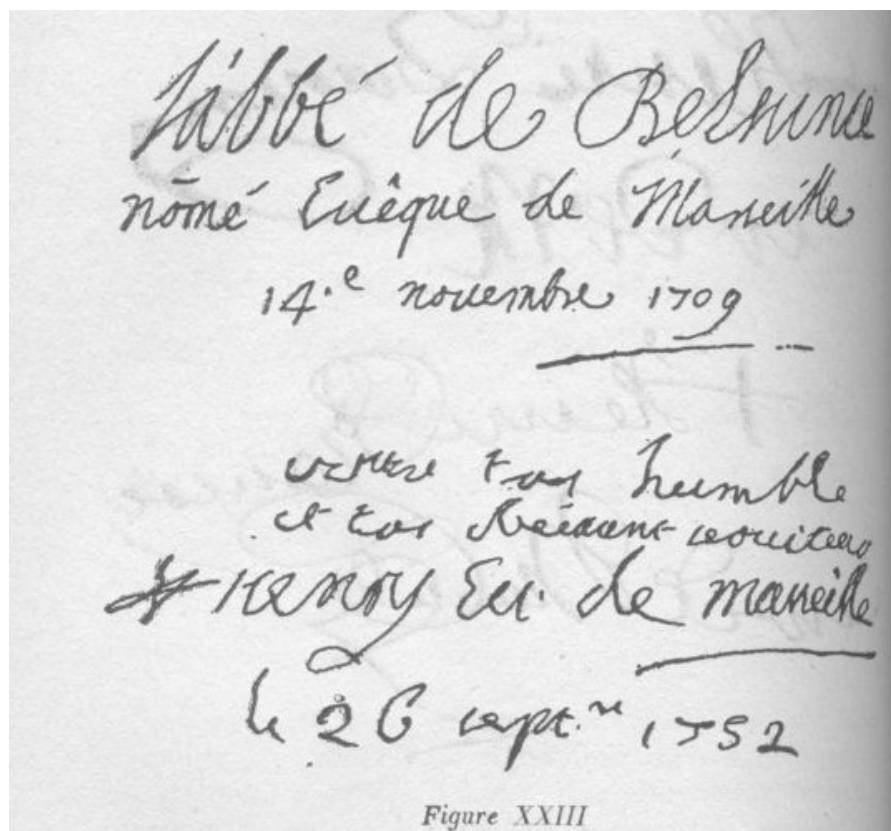 L'abbé de Belsunce
nōmé Evêque de Marseille
14.e novembre 1709
votre tres humble
et tres obeissant serviteur
✝ Henry Ev. de marseille
le 26 sept.re 1752
Figure XXIII